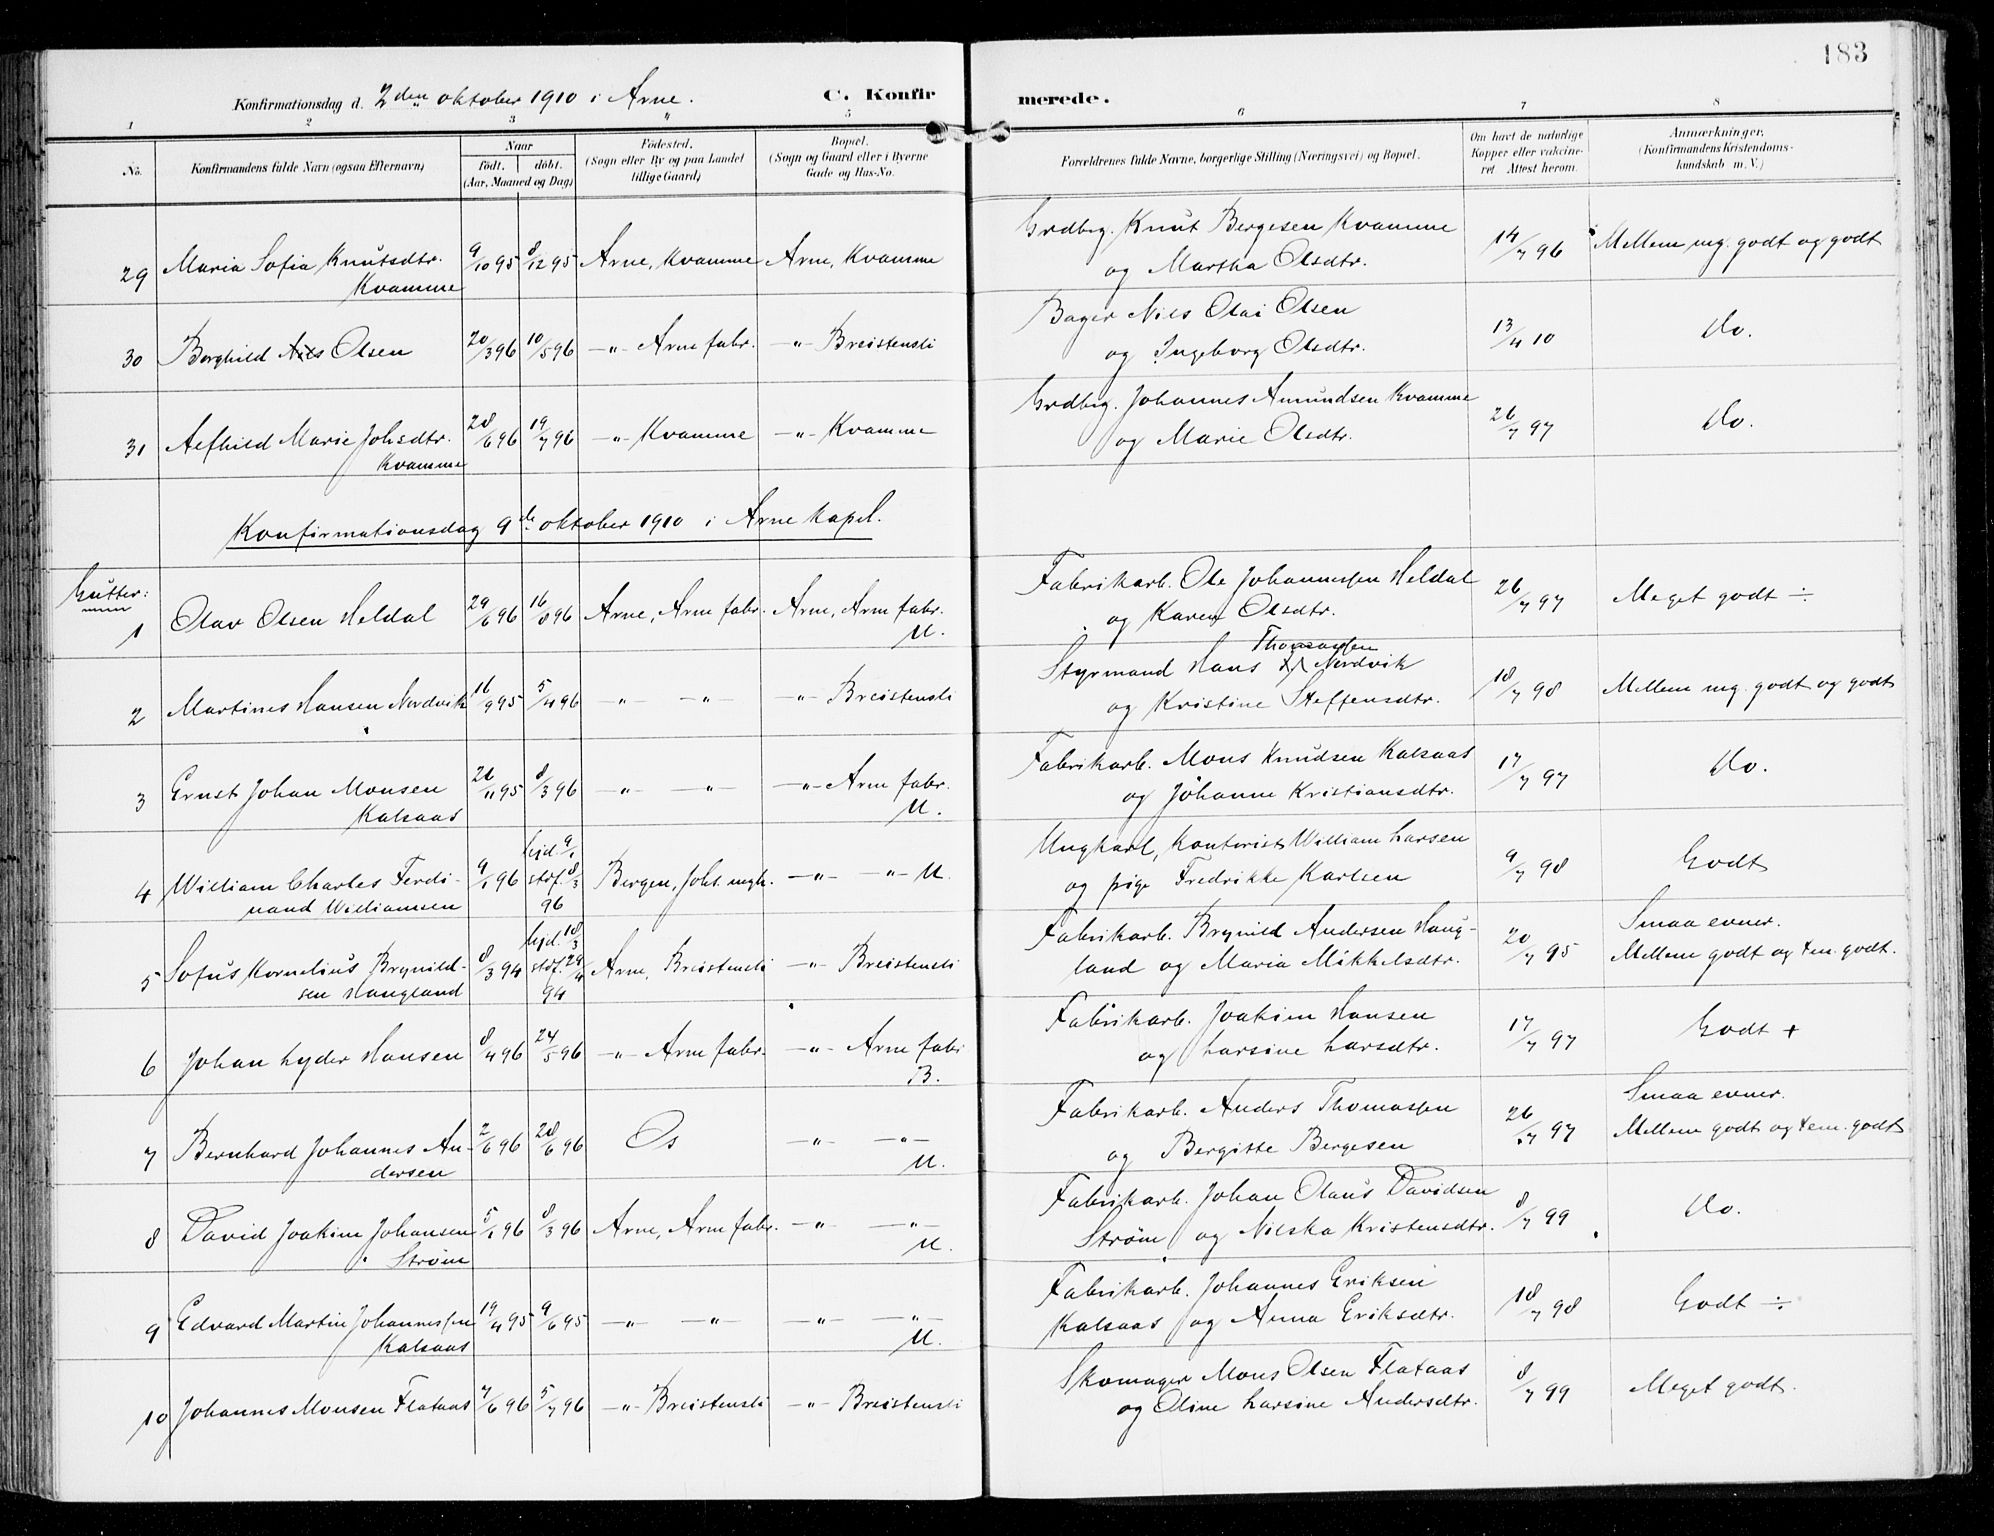 183
Konfirmationsdag d. 2den oktober 1910 i Arne. C. Konfirmerede.
1 2 3 " 5 6 7 8
No. Konfirmandens fulde Navn (ogsaa Efternavn) Naar født. døbt. (Aar, Maaned og Dag) Fødested. (Sogn eller By og paa Landet tillige Gaard) Bopæl. (Sogn og Gaard eller i Byerne Gade og Hus-No. Forældrenes fulde Navne, borgerlige Stilling (Næringsvei) og Bopæl. Om havt de naturlige Kopper eller vakcineret Attest herom. Anmærkninger. (Konfirmandens Kristendomskundskab m. V.)
29 Maria Sofia Knutsdtr. Kvamme 9/10 95 8/12 95 Arne, Kvamme Arne, Kvamme Grdbrg. Knut Bergesen Kvamme og Martha Olsdtr. 14/7 96 Mellem mg. godt og godt
30 Borghild Nils Olsen 20/3 96 10/5 96 -"- Arne fabr. -"- Breistensli Bager Nils Olai Olsen og Ingeborg Olsdtr. 13/4 10 do.
31 Alfhild Marie Johsdtr. Kvamme 28/6 96 19/7 96 -"- Kvamme -"- Kvamme Grdbrg. Johannes Amundsen Kvamme og Marie Olsdtr. 26/7 97 do.
Konfirmationsdag 9de oktober 1910 i Arne kapel.
Gutter:
1 Olav Olsen Heldal 29/6 96 16/8 96 Arne, Arne fabr. Arne, Arne fabr. U. Fabrikarb. Ole Johannessen Heldal og Karen Olsdtr. 26/7 97 Meget godt ÷
2 Martines Hansen Nordvik 16/9 95 5/4 96 -"- -"- -"- Breistensli Styrmand Hans Thomassen Nordvik og Kristine Steffensdtr. 18/7 98 Mellem mg. godt og godt
3 Ernst Johan Monsen Kalsaas 26/11 95 8/3 96 -"- -"- -"- Arne fabr. U. Fabrikarb. Mons Knudsen Kalsaas og Johanne Kristiansdtr. 17/7 97 do.
4 William Charles Ferdinand Williamsen 9/1 96 hjd. 9/1 stdf. 8/3 96 Bergen, Johs. mgh. -"- -"- U. Ungkarl, Kontorist William Larsen og pige Fredrikke Karlsen 9/7 98 Godt
5 Sofus Kornelius Brynildsen Haugland 8/3 94 hjd. 18/3 stdf. 29/4 94 Arne, Breistensli -"- Breistensli Fabrikarb. Brynild Andersen Haugland og Maria Mikkelsdtr. 20/7 95 Smaa evner. Mellem godt og tem. godt.
6 Johan Lyder Hansen 8/4 96 24/5 96 -"- Arne fabr. -"- Arne fabr. B. Fabrikarb. Joakim Hansen og Larsine Larsdtr. 17/7 97 Godt +
7 Bernhard Johannes Andersen 2/6 96 28/6 96 Os -"- -"- U. Fabrikarb. Anders Thomassen og Bergitte Bergesen 26/7 97 Smaa evner. Mellem godt og tem. godt
8 David Joakim Johansen Strøm 5/1 96 8/3 96 Arne, Arne fabr. -"- -"- U. Fabrikarb. Johan Olaus Davidsen Strøm og Nilska Kristensdtr. 8/7 99 do.
9 Edvard Martin Johannessen Kalsaas 19/4 95 9/6 95 -"- -"- -"- -"- U. Fabrikarb. Johannes Eriksen Kalsaas og Anna Eriksdtr. 18/7 98 Godt ÷
10 Johannes Monsen Flataas 7/6 96 5/7 96 -"- Breistensli -"- Breistensli Skomager Mons Olsen Flataas og Oline Larsine Andersdtr. 8/7 99 Meget godt.